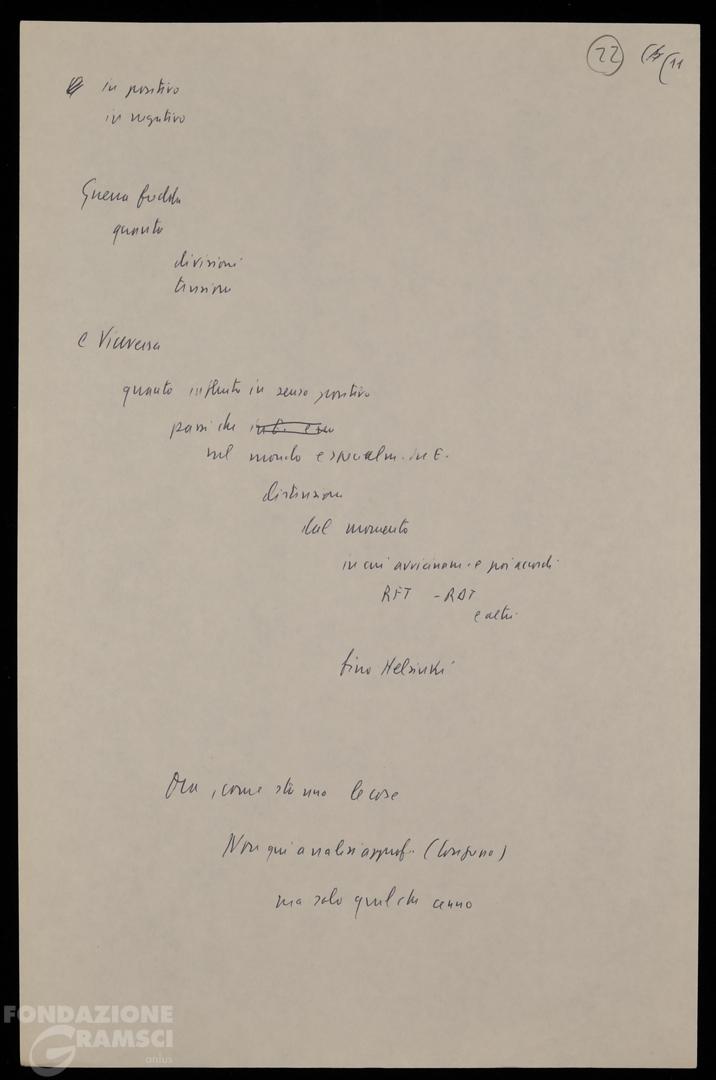 22
in positivo
in negativo
Guerra fredda
quanto
divisioni
tensioni
e Viceversa
quanto influito in senso positivo
passi che
nel mondo e specialm. in E.
distensione
dal momento
in cui avvicinam. e poi accordi
RFT - RDT
e altri
fino Helsinki
Ora, come stanno le cose
Non qui analisi approf.
ma solo qualche cenno
FONDAZIONE
GRAMSCI
onlus